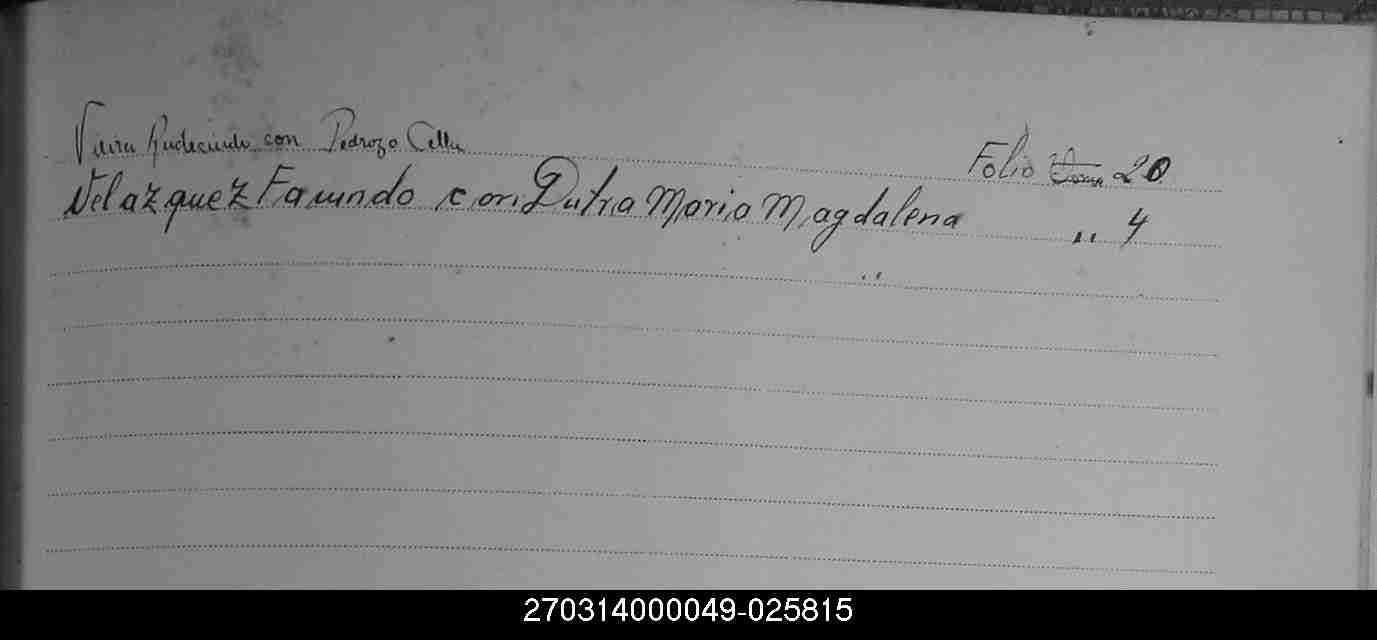 Vieira Rudecindo con Pedrozo Celia Folio 20
Velazquez Facundo con Dutra Maria Magdalena " 4
270314000049-025815